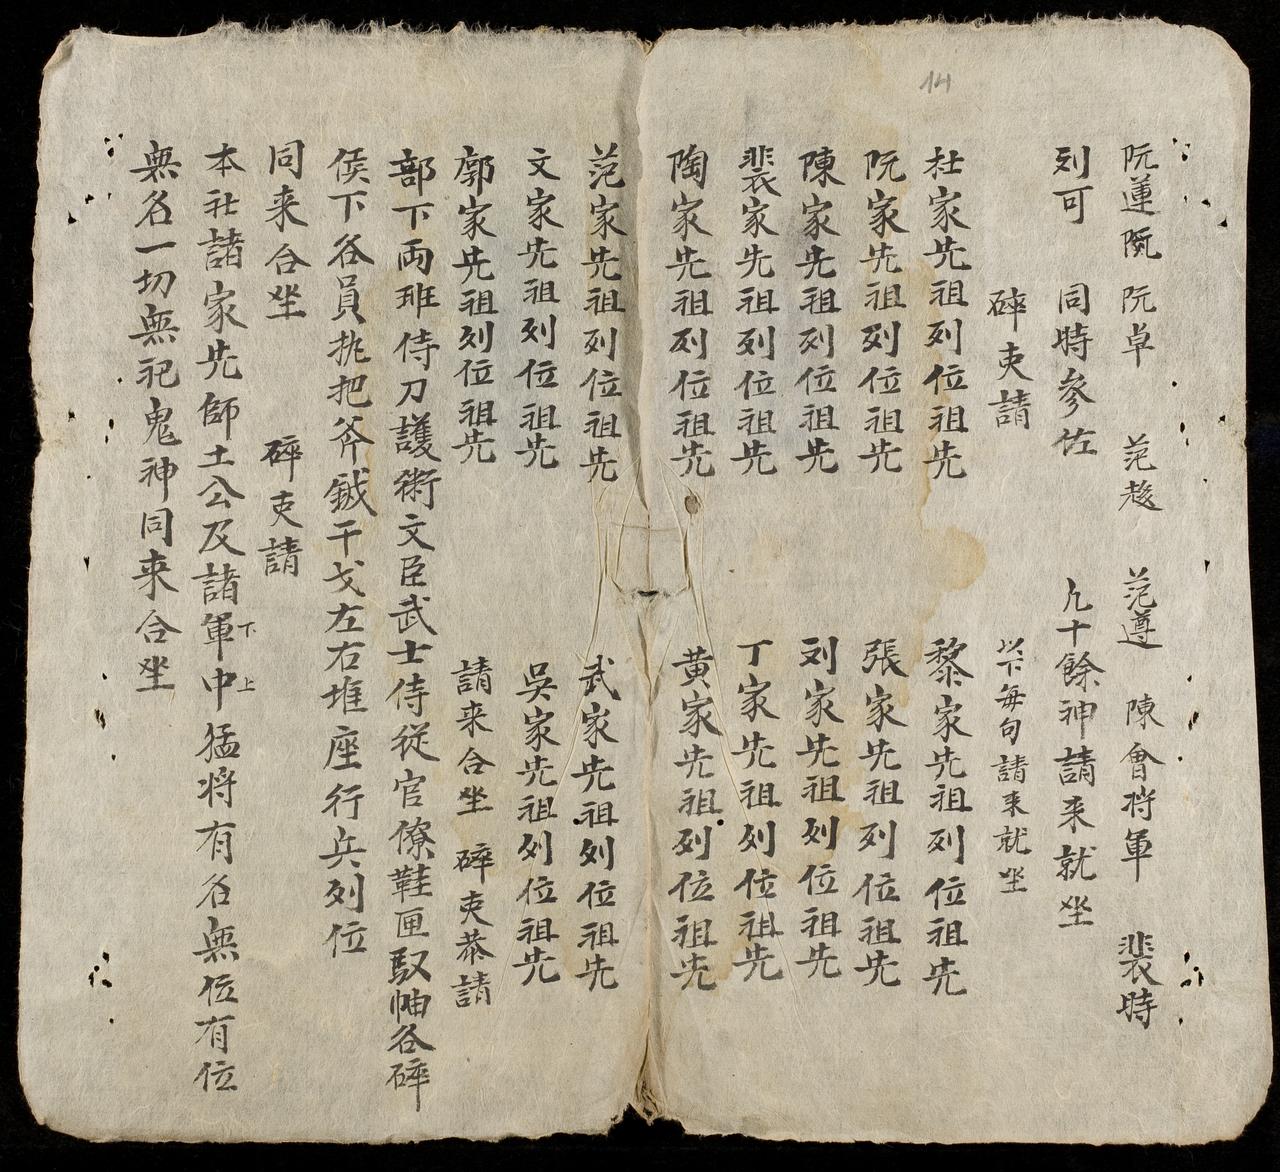 14
阮蓮阮 阮卓 范趂 范遵 陳會將軍 裴時
列可 同時參佐 九十餘神請來就坐
碎吏請 以下每句請來就坐
杜家先祖列位祖先 黎家先祖列位祖先
阮家先祖列位祖先 張家先祖列位祖先
陳家先祖列位祖先 刘家先祖列位祖先
裴家先祖列位祖先 丁家先祖列位祖先
陶家先祖列位祖先 黄家先祖列位祖先
范家先祖列位祖先 武家先祖列位祖先
文家先祖列位祖先 吳家先祖列位祖先
郭家先祖列位祖先 請來合坐 碎吏恭請
部下兩班侍刀護衛文臣武士侍從官僚鞋匣馭帕各碎
侯下各員執把斧鉞干戈左右堆座行兵列位
同来合坐 碎吏請
本社諸家先師土公及諸軍中下上猛將有名無位有位
無名一切無祀鬼神同来合坐